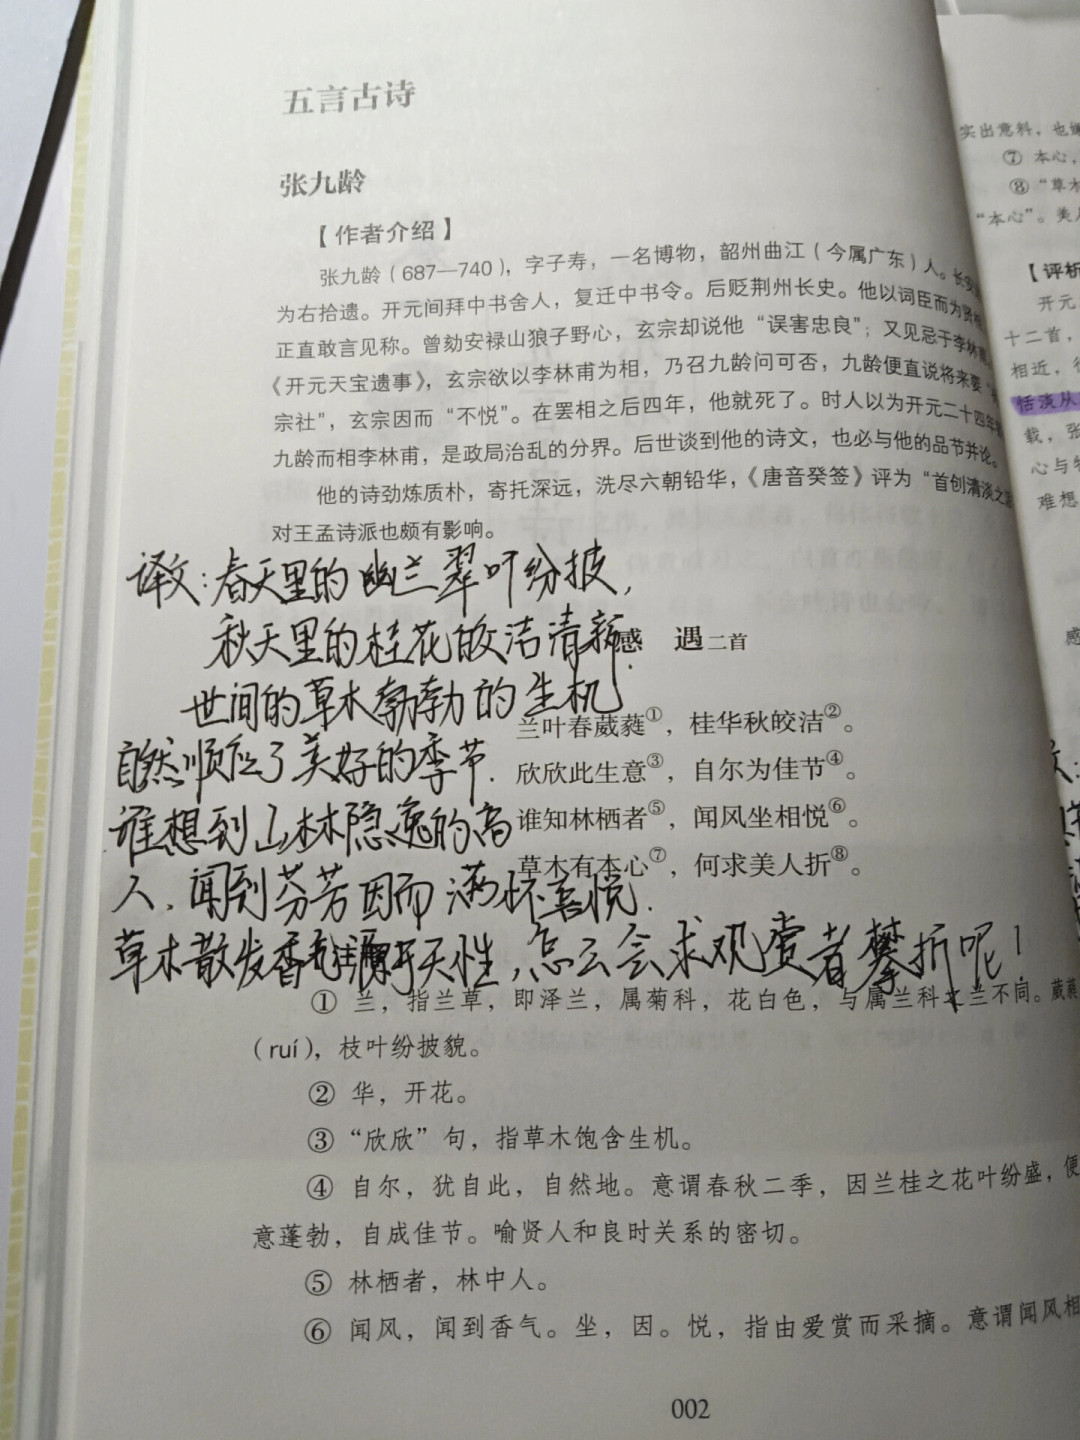 五言古诗
张九龄
【作者介绍】
张九龄（687—740），字子寿，一名博物，韶州曲江（今属广东）人。长安
为右拾遗。开元间拜中书舍人，复迁中书令。后贬荆州长史。他以词臣而为贤相
正直敢言见称。曾劾安禄山狼子野心，玄宗却说他“误害忠良”；又见忌于李林甫
《开元天宝遗事》，玄宗欲以李林甫为相，乃召九龄问可否，九龄便直说将来要“
宗社”，玄宗因而“不悦”。在罢相之后四年，他就死了。时人以为开元二十四年
九龄而相李林甫，是政局治乱的分界。后世谈到他的诗文，也必与他的品节并论。
他的诗劲炼质朴，寄托深远，洗尽六朝铅华，《唐音癸签》评为“首创清淡之
对王孟诗派也颇有影响。
译文：春天里的幽兰翠叶纷披，
秋天里的桂花皎洁清新.
世间的草木勃勃的生机
自然顺应了美好的季节.
谁想到山林隐逸的高
人，闻到芬芳因而满怀喜悦.
草木散发香气源于天性，怎么会求观赏者攀折呢！
感 遇二首
兰叶春葳蕤①，桂华秋皎洁②。
欣欣此生意③，自尔为佳节④。
谁知林栖者⑤，闻风坐相悦⑥。
草木有本心⑦，何求美人折⑧。
① 兰，指兰草，即泽兰，属菊科，花白色，与属兰科之兰不同。葳蕤
（ruí），枝叶纷披貌。
② 华，开花。
③ “欣欣”句，指草木饱含生机。
④ 自尔，犹自此，自然地。意谓春秋二季，因兰桂之花叶纷盛，便
意蓬勃，自成佳节。喻贤人和良时关系的密切。
⑤ 林栖者，林中人。
⑥ 闻风，闻到香气。坐，因。悦，指由爱赏而采摘。意谓闻风相
002
实出意料，也
⑦ 本心，
⑧ “草木
“本心”。美人
【评析
开元
十二首，
相近，
恬淡从
载，张
心与
难想
感